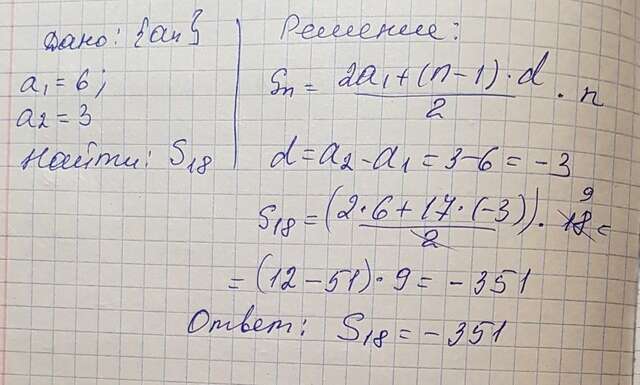 Дано: {an}
a₁ = 6;
a₂ = 3
Найти: S₁₈
Решение:
Sn = (2a₁ + (n-1)·d)/2 · n
d = a₂ - a₁ = 3 - 6 = -3
9
S₁₈ = (2·6 + 17·(-3))/2 · 18 =
= (12 - 51)·9 = -351
Ответ: S₁₈ = -351